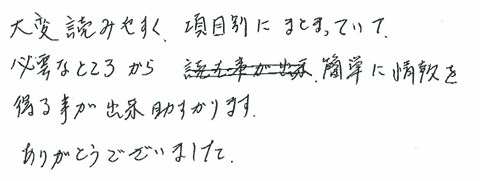 大変読みやすく、項目別にまとまっていて、
必要なところから 読む事が出来、簡単に情報を
得る事が出来助かります。
ありがとうございました。